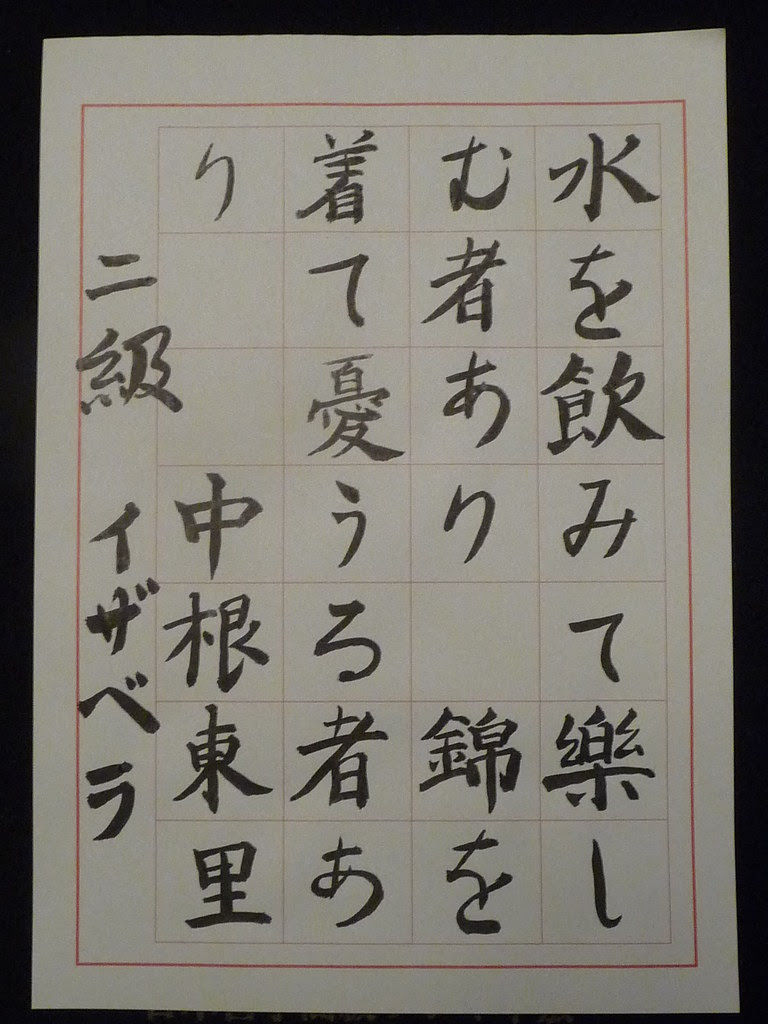 水を飲みて樂し
む者あり 錦を
着て憂うる者あ
り 中根東里
二級 イザベラ